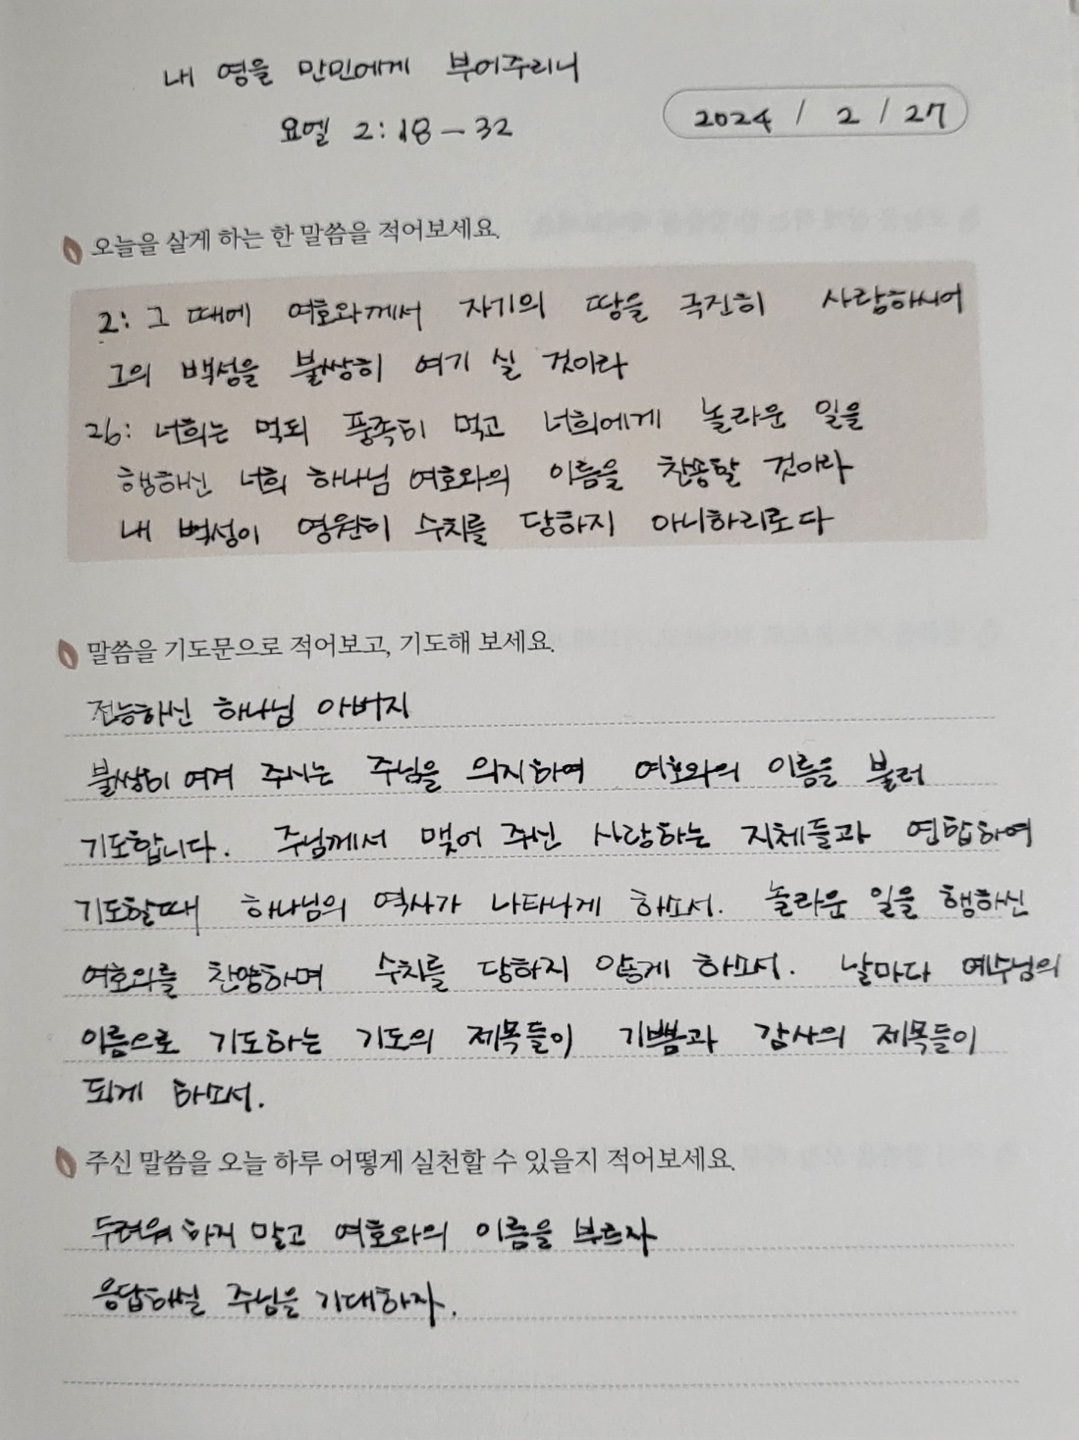 내 영을 만민에게 부어주리니
요엘 2:18-32
2024 / 2 / 27
오늘을 살게 하는 한 말씀을 적어보세요.
2: 그 때에 여호와께서 자기의 땅을 극진히 사랑하시어
그의 백성을 불쌍히 여기 실 것이라
26: 너희는 먹되 풍족히 먹고 너희에게 놀라운 일을
행하신 너희 하나님 여호와의 이름을 찬송할 것이라
내 백성이 영원히 수치를 당하지 아니하리로다
말씀을 기도문으로 적어보고, 기도해 보세요.
전능하신 하나님 아버지
불쌍히 여겨 주시는 주님을 의지하여 여호와의 이름을 불러
기도합니다. 주님께서 맺어 주신 사랑하는 지체들과 연합하여
기도할때 하나님의 역사가 나타나게 하소서. 놀라운 일을 행하신
여호와를 찬양하며 수치를 당하지 않게 하소서. 날마다 예수님의
이름으로 기도하는 기도의 제목들이 기쁨과 감사의 제목들이
되게 하소서.
주신 말씀을 오늘 하루 어떻게 실천할 수 있을지 적어보세요.
두려워 하지 말고 여호와의 이름을 부르자
응답하실 주님을 기대하자.